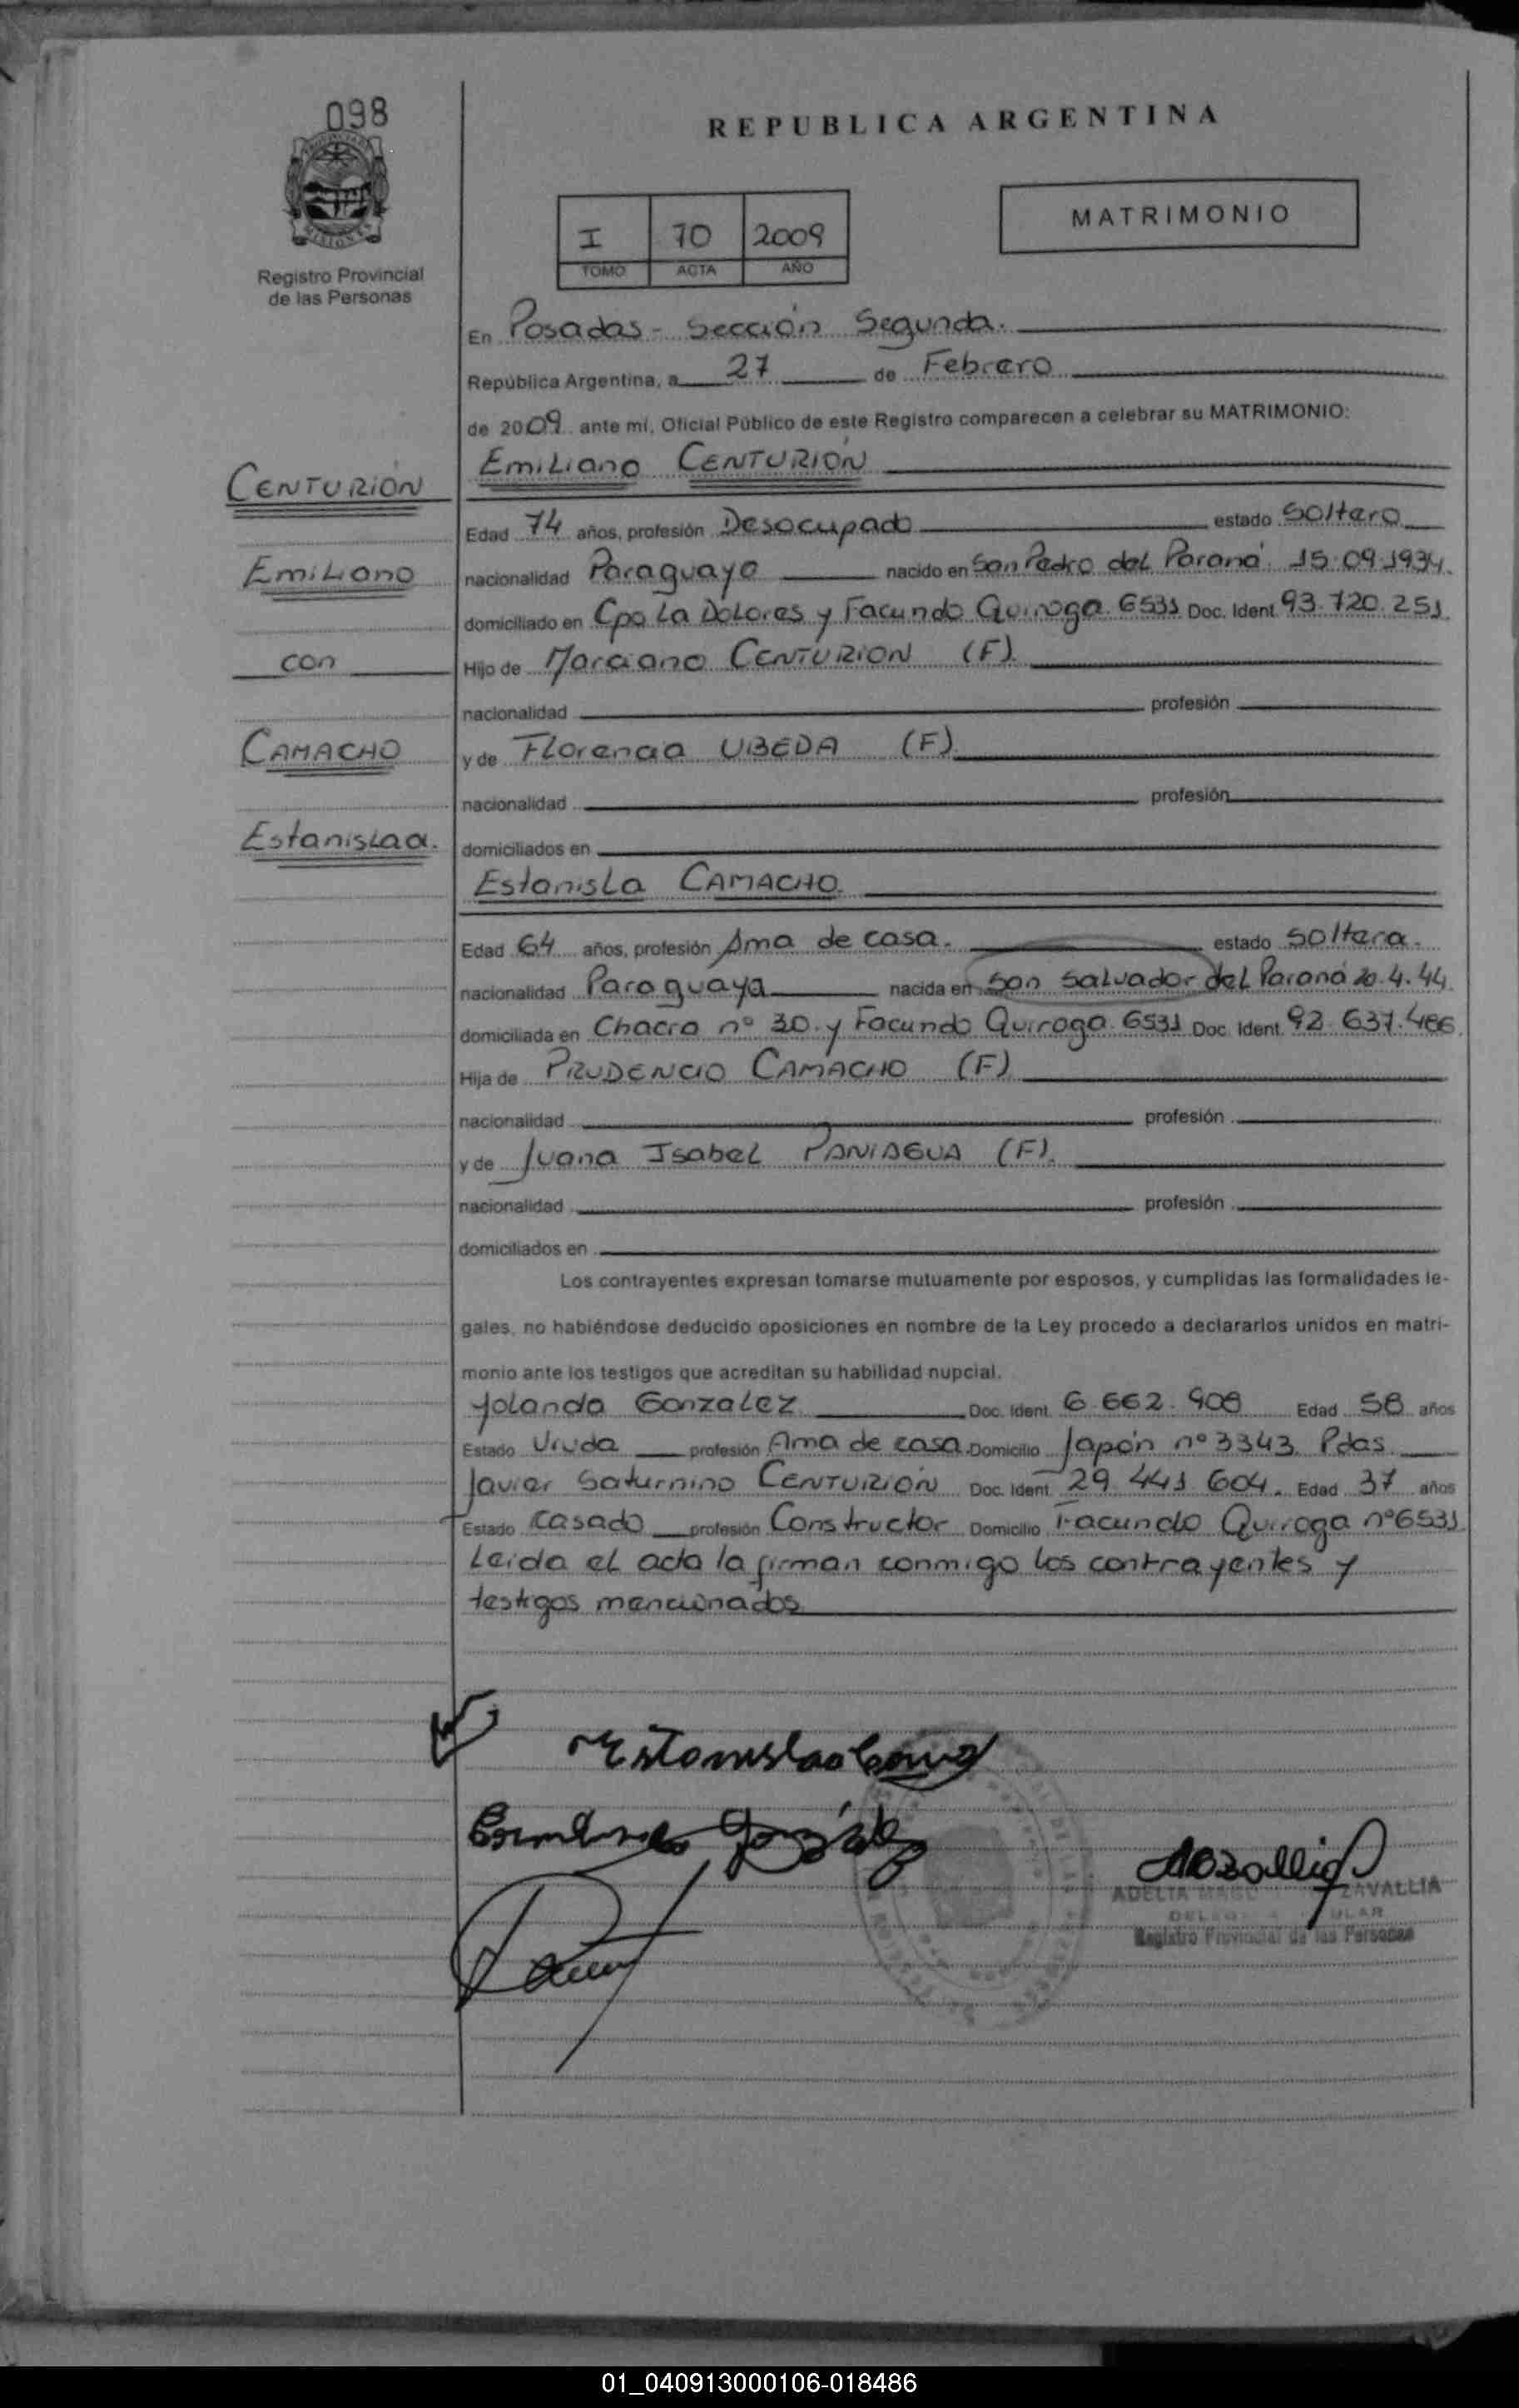 098
REPUBLICA ARGENTINA
MISIONES
Registro Provincial
de las Personas
I 70 2009
TOMO ACTA AÑO
MATRIMONIO
En Posadas - Sección Segunda.
República Argentina, a 27 de Febrero
de 2009 ante mí, Oficial Público de este Registro comparecen a celebrar su MATRIMONIO:
CENTURIÓN
Emiliano
con
CAMACHO
Estanislaa.
Emiliano CENTURIÓN
Edad 74 años, profesión Desocupado estado Soltero
nacionalidad Paraguaya nacido en San Pedro del Paraná 15.09.1934.
domiciliado en Cpo La Dolores y Facundo Quiroga 6531 Doc. Ident. 93.720.251
Hijo de Marciano CENTURION (F).
nacionalidad profesión
y de Florencia UBEDA (F).
nacionalidad profesión
domiciliados en
Estanisla CAMACHO.
Edad 64 años, profesión Ama de casa. estado Soltera.
nacionalidad Paraguaya nacida en San Salvador del Paraná 20.4.44.
domiciliada en Chacra nº 30. y Facundo Quiroga 6531 Doc. Ident. 92.637.486.
Hija de PRUDENCIO CAMACHO (F)
nacionalidad profesión
y de Juana Isabel PANIAGUA (F).
nacionalidad profesión
domiciliados en
Los contrayentes expresan tomarse mutuamente por esposos, y cumplidas las formalidades le-
gales, no habiéndose deducido oposiciones en nombre de la Ley procedo a declararlos unidos en matri-
monio ante los testigos que acreditan su habilidad nupcial.
Yolanda Gonzalez Doc. Ident. 6.662.908 Edad 58 años
Estado Viuda profesión Ama de casa. Domicilio Japón nº 3343. Pdas.
Javier Saturnino CENTURIÓN Doc. Ident. 29.441.604. Edad 37 años
Estado Casado profesión Constructor Domicilio Facundo Quiroga nº6531
Leida el acta la firman conmigo los contrayentes y
testigos mencionados
ADELIA ZAVALLIA
Registro Provincial de las Personas
01_040913000106-018486